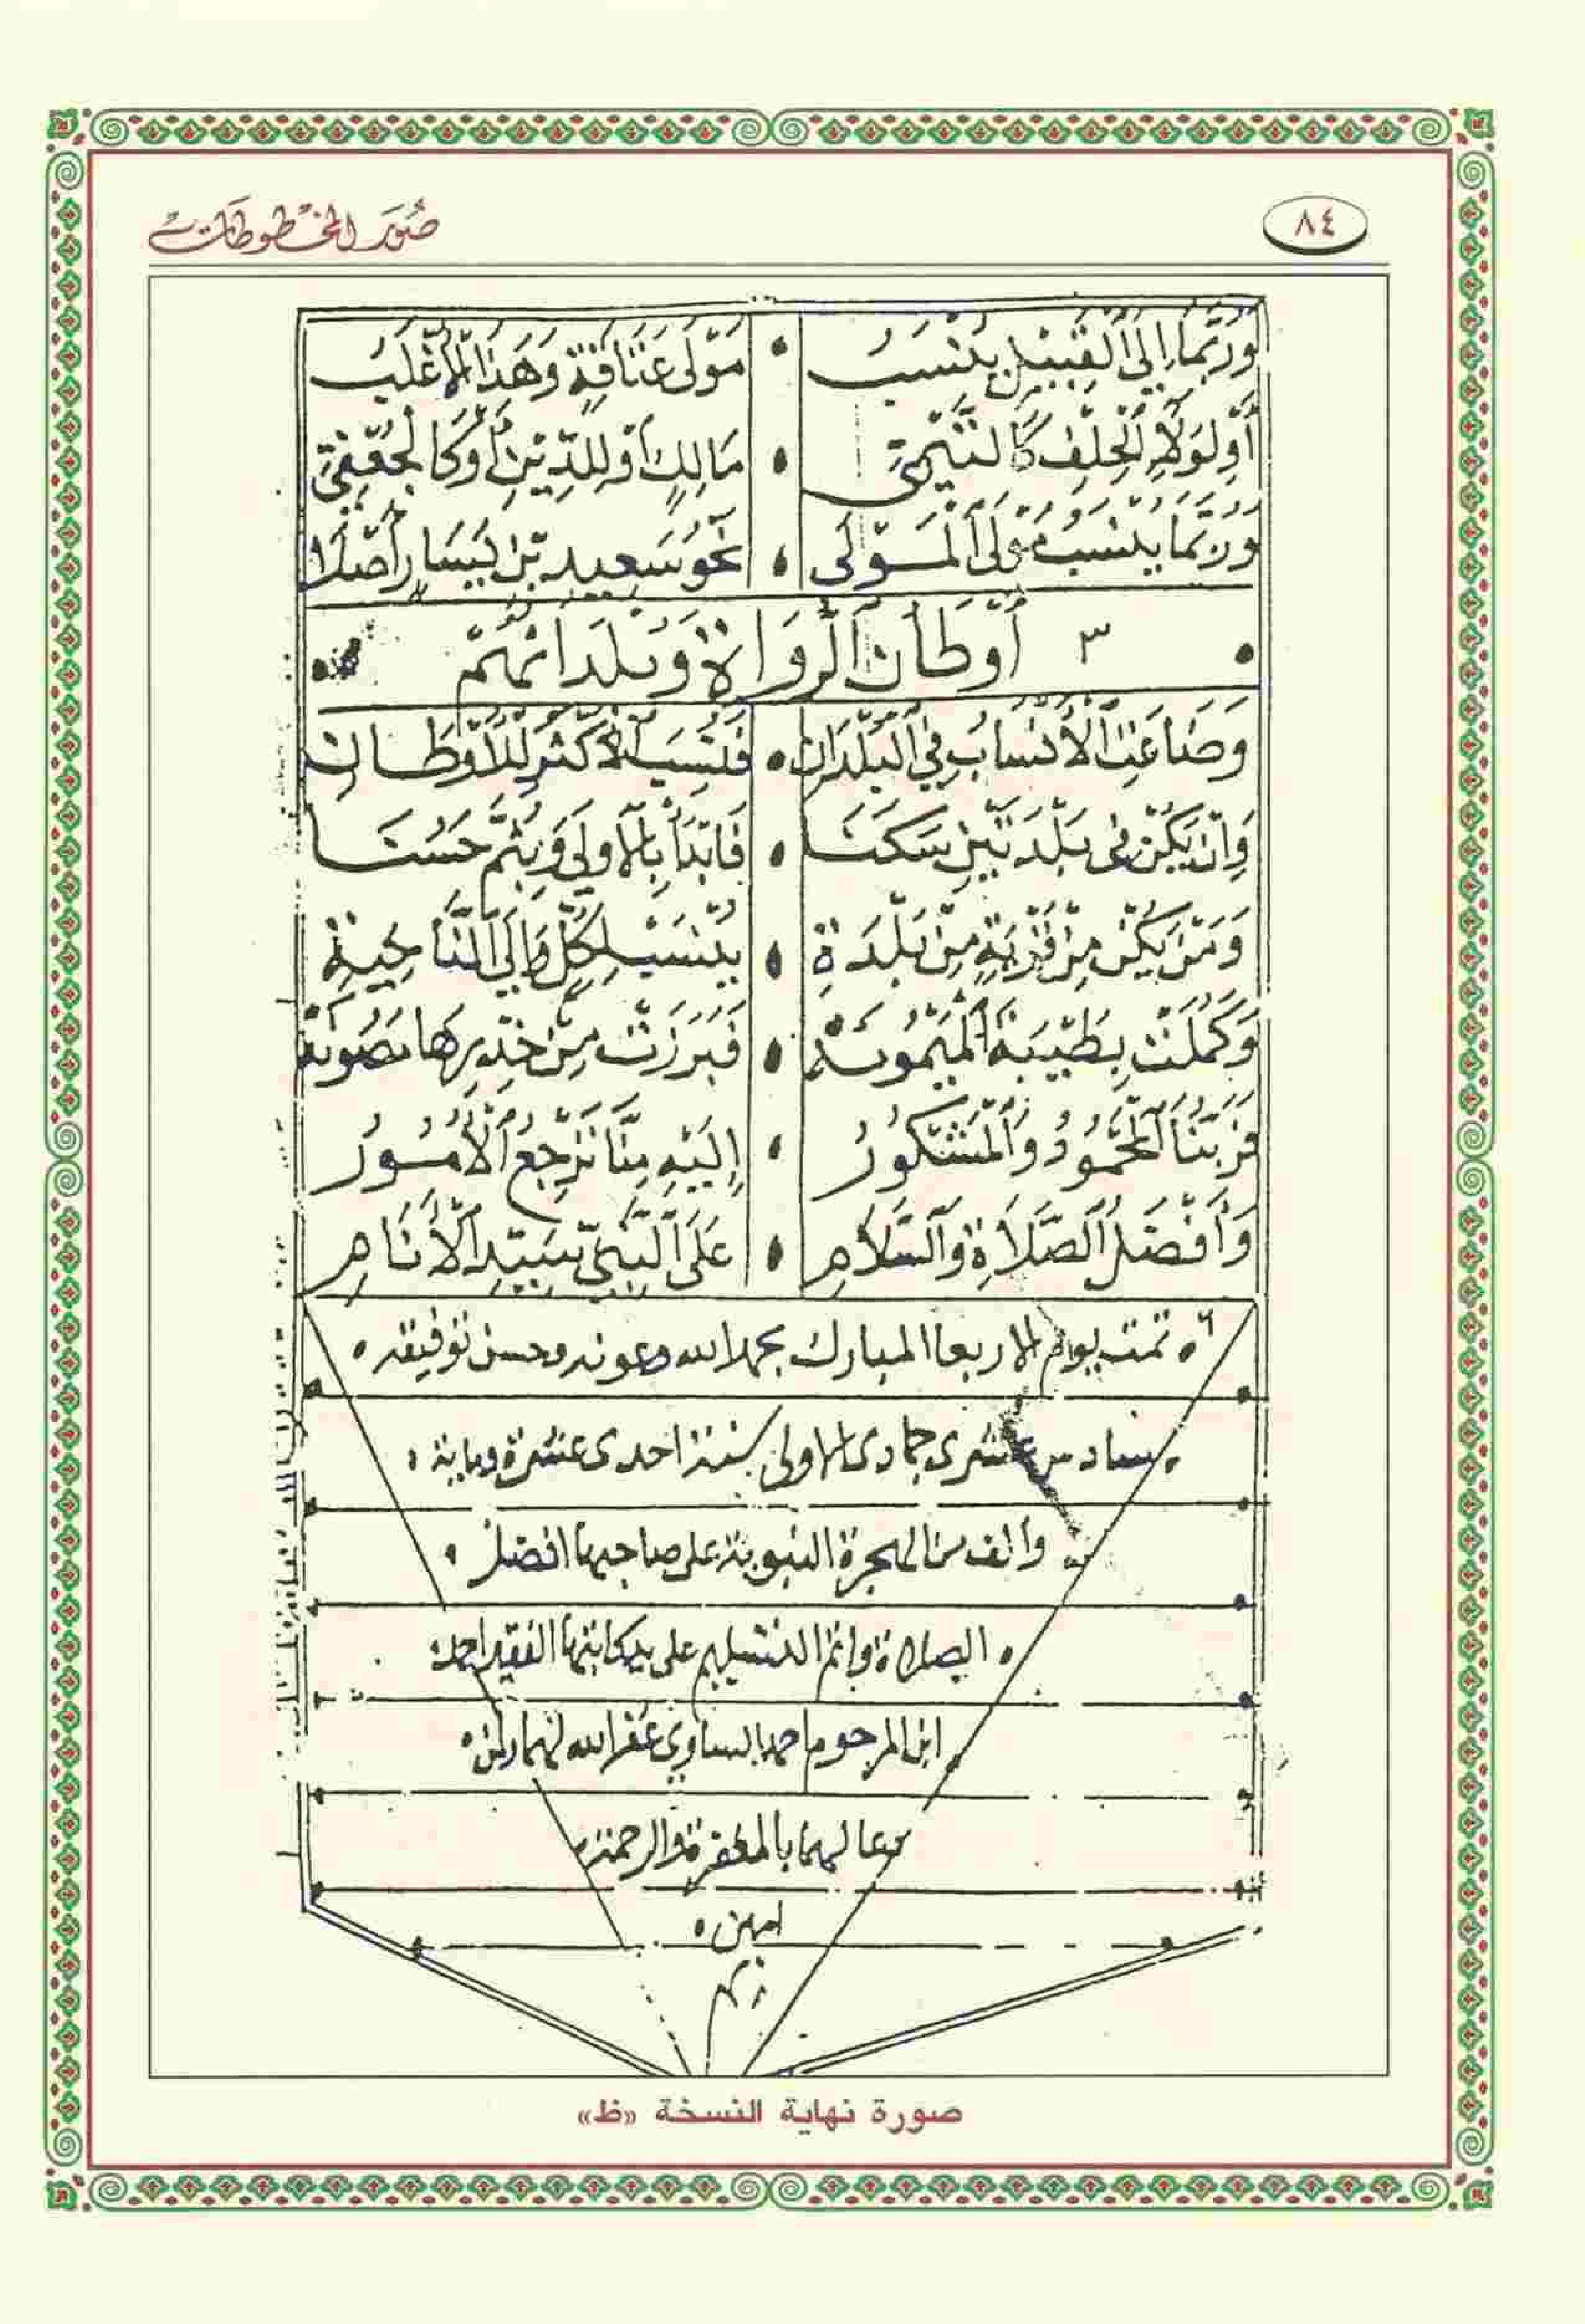 ٨٤
صُوَر المخطوطات
وَرُبَّمَا إِلَى ٱلْقَبِيْلِ يُنْسَبُ مَوْلَى عَتَاقَةٍ وَهَذَا ٱلْأَغْلَبُ
أَوْ لِوَلَاءِ ٱلْحِلْفِ كَالتَّيْمِيِّ مَالِكٍ أَوْ لِلدِّيْنِ أَوْ كَالْجُعْفِيِّ
وَرُبَّمَا يُنْسَبُ مَوْلَى ٱلْمَوْلَى نَحْوُ سَعِيدِ بْنِ يَسَارٍ أَصْلَا
أَوْطَانُ ٱلرُّوَاةِ وَبُلْدَانُهُمْ
وَضَاعَتِ ٱلْأَنْسَابُ فِي ٱلْبُلْدَانِ فَنُسِبَ ٱلْأَكْثَرُ لِلْأَوْطَانِ
وَإِنْ يَكُنْ فِي بَلْدَتَيْنِ سَكَنَا فَابْدَأْ بِالْأُولَى وَبِثُمَّ حَسُنَا
وَمَنْ يَكُنْ مِنْ قَرْيَةٍ مِنْ بَلْدَةِ يُنْسَبْ لِكُلٍّ وَإِلَى ٱلنَّاحِيَةِ
وَكَمُلَتْ بِطَيْبَةَ ٱلْمَيْمُونَهْ فَبَرَزَتْ مِنْ خِدْرِهَا مَصُونَهْ
فَرَبُّنَا ٱلْمَحْمُودُ وَٱلْمَشْكُورُ إِلَيْهِ مِنَّا تَرْجِعُ ٱلْأُمُورُ
وَأَفْضَلُ ٱلصَّلَاةِ وَٱلسَّلَامِ عَلَى ٱلنَّبِيِّ سَيِّدِ ٱلْأَنَامِ
تمت يوم الاربعا المبارك بحمد الله وعونه وحسن توفيقه
سادس عشرى جمادى الاولى سنة احدى عشرة وماية
والف من الهجرة النبوية على صاحبها افضل
الصلاة واتم التسليم على يد كاتبها الفقير احمد
ابن المرحوم احمد غفر الله لهما ولمن
دعا لهما بالمغفرة والرحمة
امين
صورة نهاية النسخة «ظ»